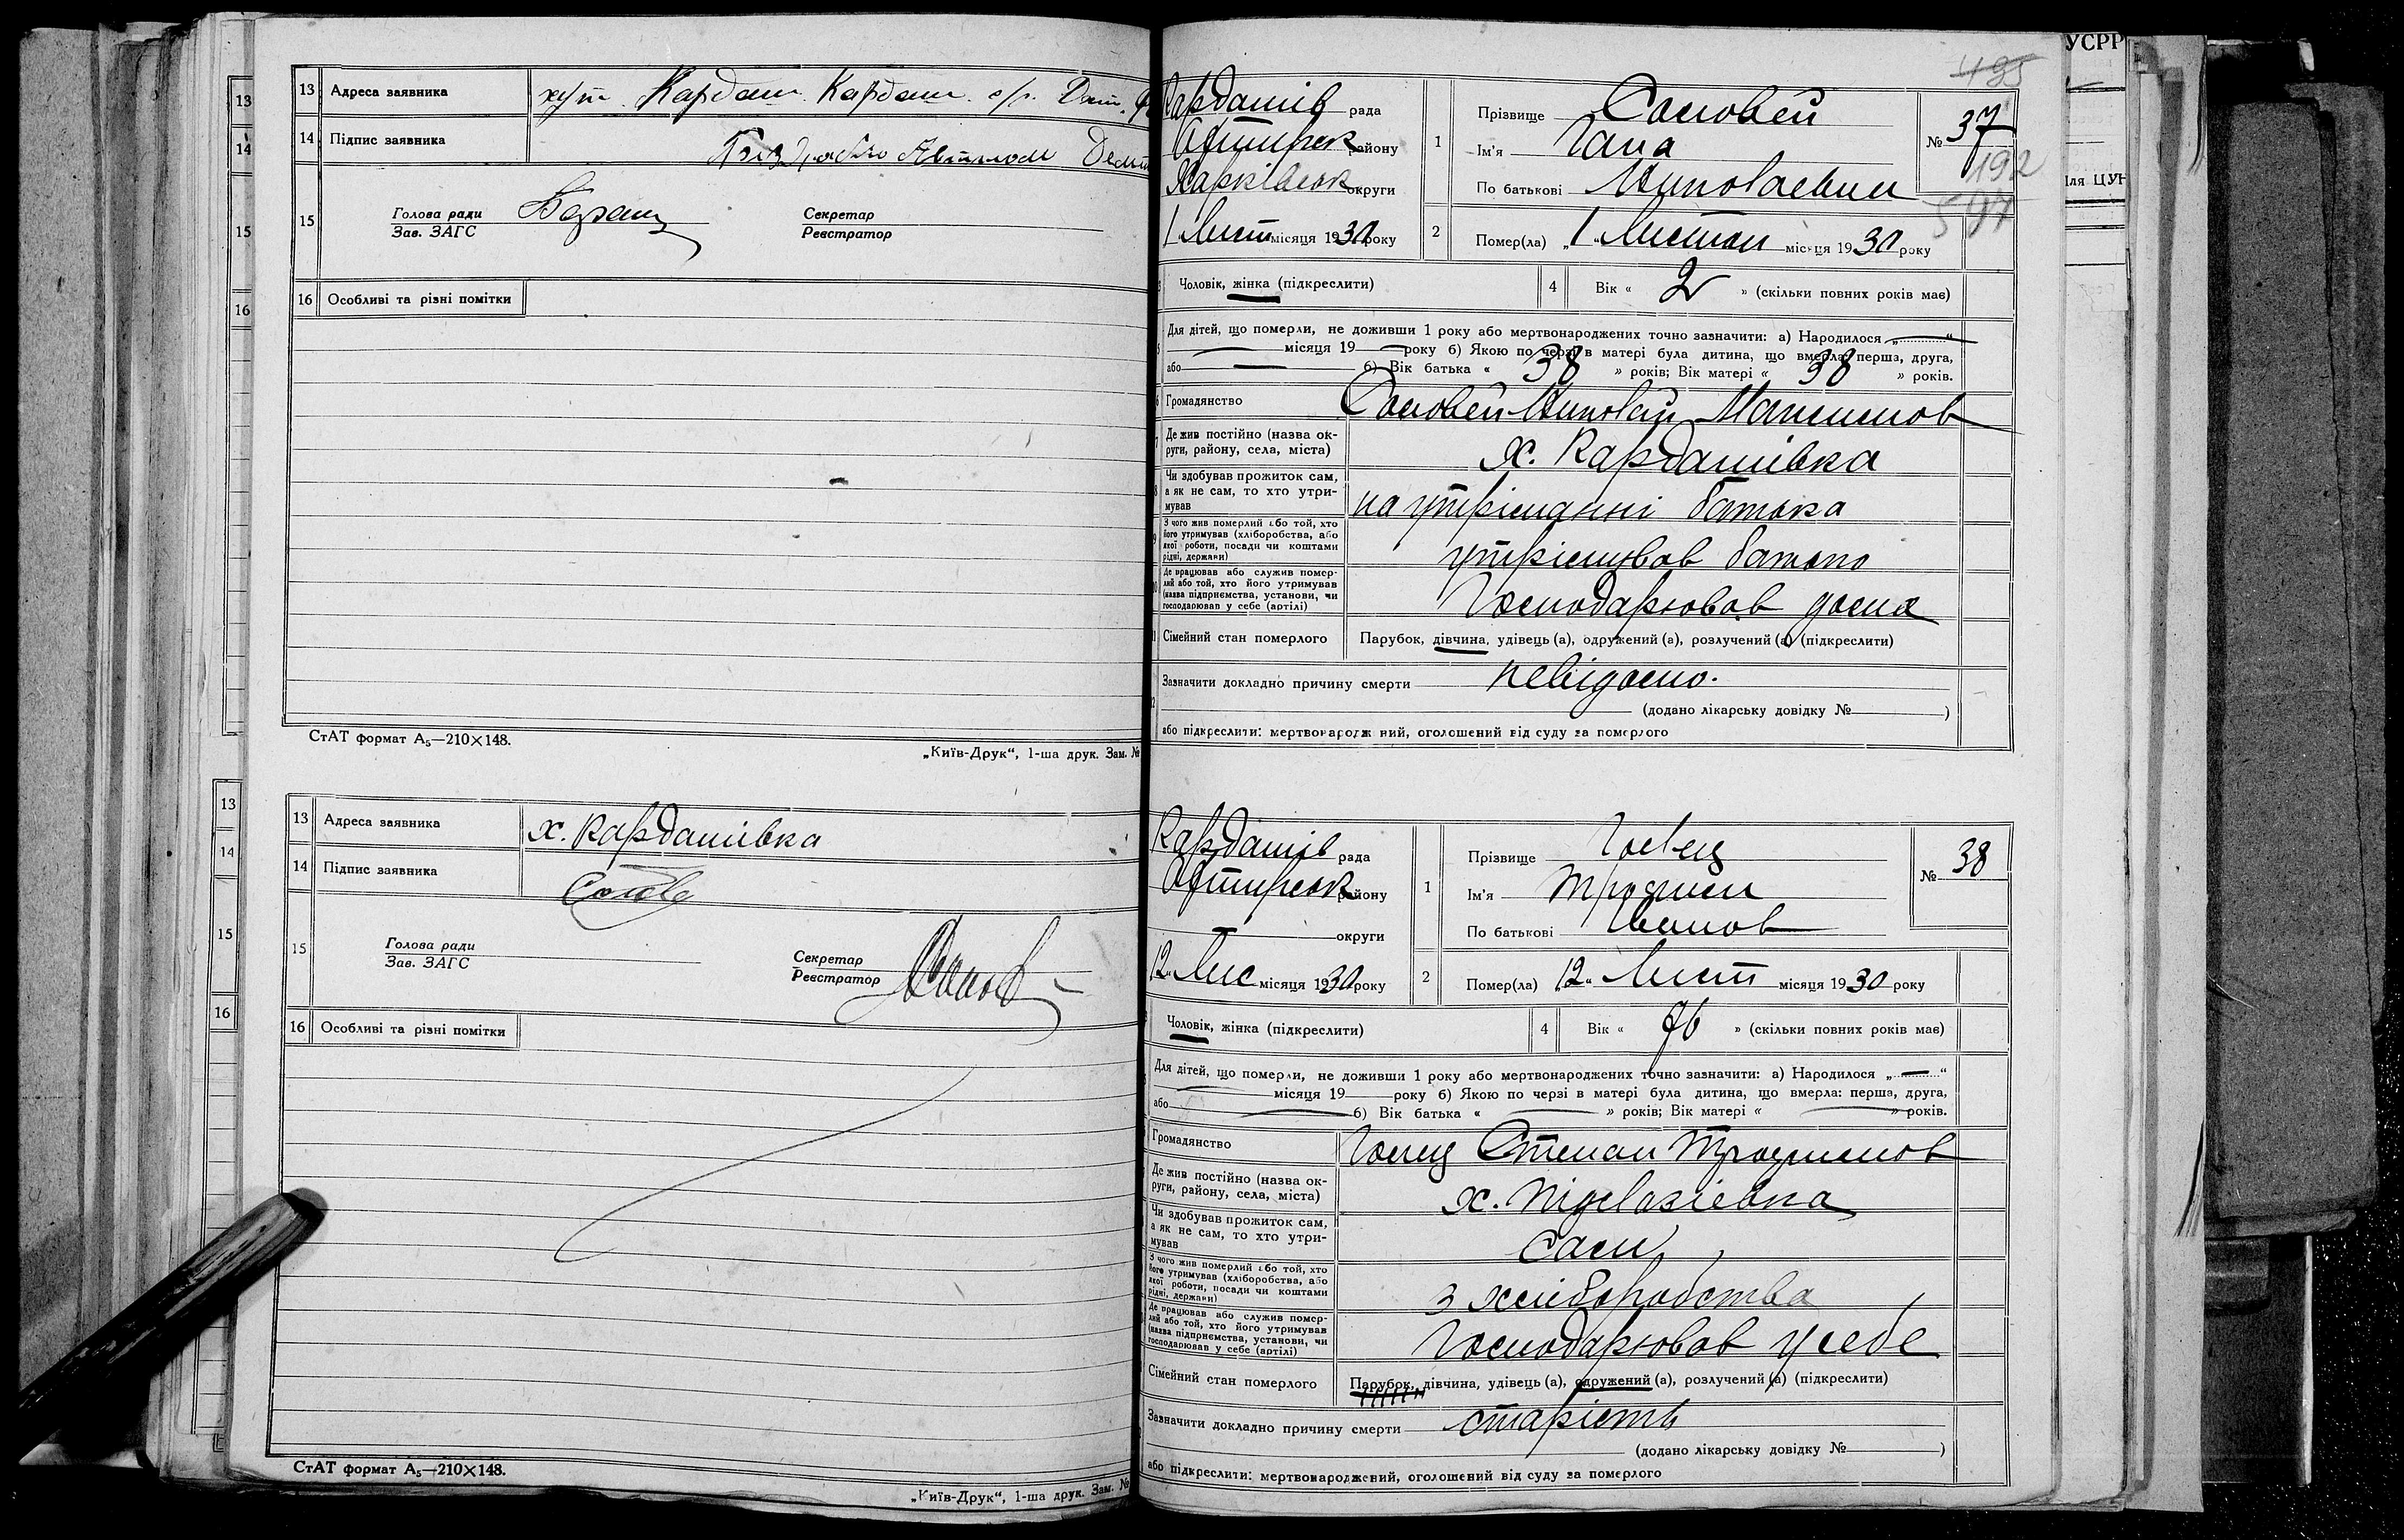 13 Адреса заявника хут. Кардаш. Кардаш. с/р.
14 Підпис заявника
15 Голова ради
Зав. ЗАГС
Секретар
Реєстратор
16 Особливі та різні помітки
СтАТ формат А₅—210×148.
„Київ-Друк“, 1-ша друк. Зам. №
13 Адреса заявника х. Кардашівка
14 Підпис заявника
15 Голова ради
Зав. ЗАГС
Секретар
Реєстратор
16 Особливі та різні помітки
СтАТ формат А₅—210×148.
„Київ-Друк“, 1-ша друк. Зам. №
495
Кардашів рада
Охтирськ району
Харківськ округи
1 Лист місяця 1930 року
1 Прізвище Соловей
Ім’я Гана
По батькові Миколаевни
№ 37
192
597
2 Помер(ла) „1“ Листоп місяця 1930 року
Чоловік, жінка (підкреслити)
4 Вік « 2 » (скільки повних років має)
Для дітей, що померли, не доживши 1 року або мертвонароджених точно зазначити: а) Народилося „ “
місяця 19 року б) Якою по черзі в матері була дитина, що вмерла: перша, друга,
або б) Вік батька « 38 » років; Вік матері « 38 » років.
Громадянство Соловей Миколай Максимов
Де жив постійно (назва округи, району, села, міста) х. Кардашівка
Чи здобував прожиток сам, а як не сам, то хто утримував на утріманні батька
З чого жив померлий або той, хто його утримував (хліборобства, або якої роботи, посади чи коштами рідні, держави) утрімував батько
Де працював або служив померлий або той, хто його утримував (назва підприємства, установи, чи господарював у себе (артілі) Господарював дома
Сімейний стан померлого Парубок, дівчина, удівець (а), одружений (а), розлучений (а) (підкреслити)
Зазначити докладно причину смерти невідомо.
(додано лікарську довідку № )
або підкреслити: мертвонароджений, оголошений від суду за померлого
Кардашів рада
Охтирськ району
округи
12 Лис місяця 1930 року
1 Прізвище
Ім’я
По батькові Иванов
№ 38
2 Помер(ла) 12 Лист місяця 1930 року
Чоловік, жінка (підкреслити)
4 Вік « 76 » (скільки повних років має)
Для дітей, що померли, не доживши 1 року або мертвонароджених точно зазначити: а) Народилося „ “
місяця 19 року б) Якою по черзі в матері була дитина, що вмерла: перша, друга,
або б) Вік батька « » років; Вік матері « » років.
Громадянство Степан Трохимов
Де жив постійно (назва округи, району, села, міста) х.
Чи здобував прожиток сам, а як не сам, то хто утримував Сам
З чого жив померлий або той, хто його утримував (хліборобства, або якої роботи, посади чи коштами рідні, держави) з хліборобства
Де працював або служив померлий або той, хто його утримував (назва підприємства, установи, чи господарював у себе (артілі) Господарював у себе
Сімейний стан померлого Парубок, дівчина, удівець (а), одружений (а), розлучений (а) (підкреслити)
Зазначити докладно причину смерти старість
(додано лікарську довідку № )
або підкреслити: мертвонароджений, оголошений від суду за померлого
УСРР
для ЦУН
13
14
15
16
13
14
15
16